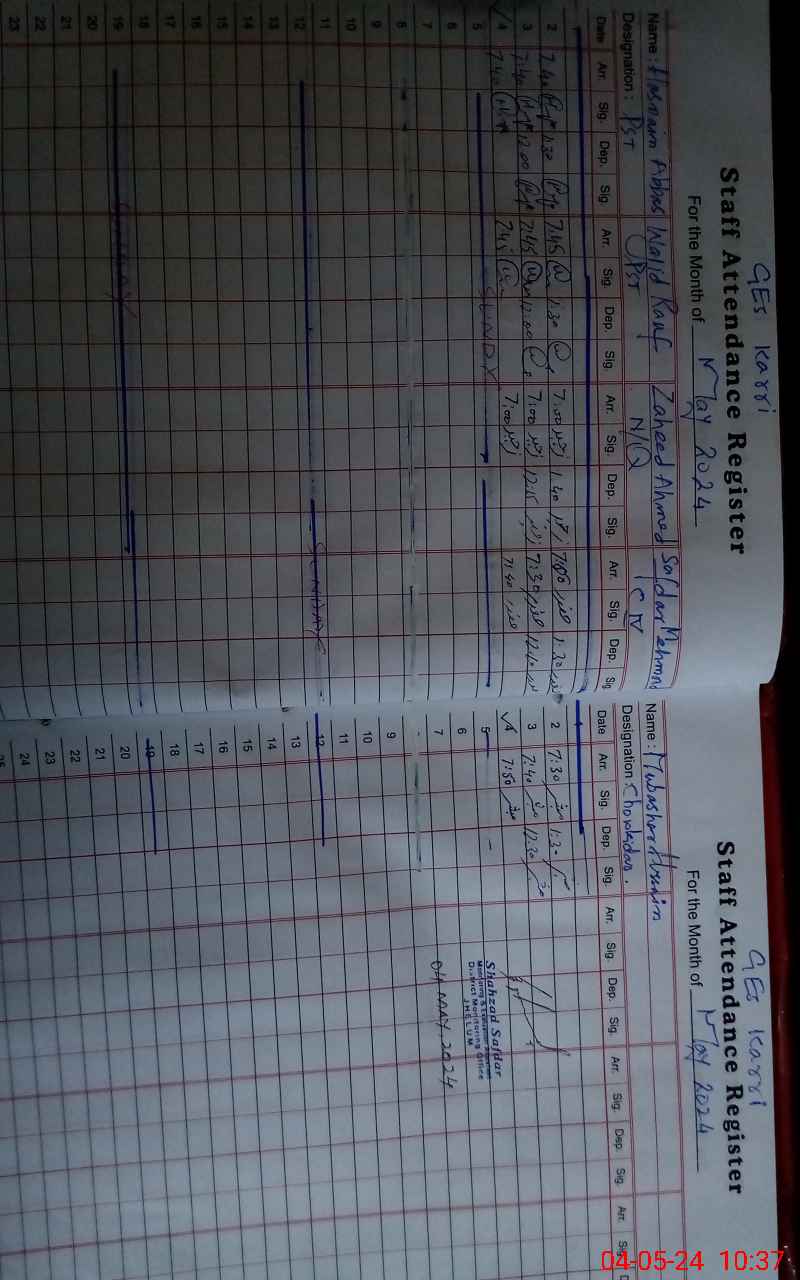 GES Karri
Staff Attendance Register
For the Month of May 2024
Name: Hasnain Abbas Walid Rauf Zaheed Ahmed Safdar Mehmood
Designation: PST PST N/Q CN
Date Arr. Sig. Dep. Sig. Arr. Sig. Dep. Sig. Arr. Sig. Dep. Sig. Arr. Sig. Dep. Sig
1
2 7:40 1:30 7:45 1:30 7:00 1:40 1:30
3 7:40 12:00 7:45 12:00 7:00 12:15 7:30 12:10
4 7:40 7:45 7:00 7:40
5 SUNDAY
6
7
8
9
10
11
12 SUNDAY
13
14
15
16
17
18
19 SUNDAY
20
21
22
23
GES Karri
Staff Attendance Register
For the Month of May 2024
Name: Mubashar Husnain
Designation: Chowkidar.
Date Arr. Sig. Dep. Sig. Arr. Sig. Dep. Sig. Arr. Sig. Dep. Sig. Arr. Sig.
1
2 7:30 1:30
3 7:40 12:30
4 7:50
5 -
6
7
9
10
11
12
13
14
15
16
17
18
19
20
21
22
23
24
25
Shahzad Safdar
Monitoring & Evaluation Assistant
District Monitoring Office
JHELUM
04 MAY 2024
04-05-24 10:37